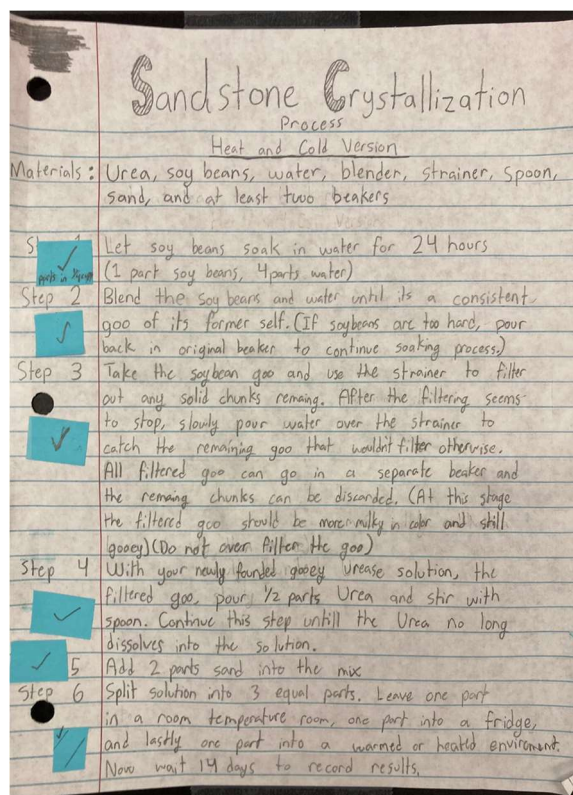 Sandstone Crystallization
Process
Heat and Cold Version
Materials: Urea, soy beans, water, blender, strainer, spoon,
sand, and at least two beakers
Let soy beans soak in water for 24 hours
(1 part soy beans, 4 parts water)
Step 2 Blend the soy beans and water until its a consistent
goo of its former self. (If soybeans are too hard, pour
back in original beaker to continue soaking process.)
Step 3 Take the soybean goo and use the strainer to filter
out any solid chunks remaing. After the filtering seems
to stop, slowly pour water over the strainer to
catch the remaining goo that wouldn't filter otherwise.
All filtered goo can go in a separate beaker and
the remaing chunks can be discarded. (At this stage
the filtered goo should be more milky in color and still
gooey) (Do not over filter the goo)
Step 4 With your newly founded gooey urease solution, the
filtered goo, pour 1/2 parts Urea and stir with
spoon. Continue this step untill the Urea no long
dissolves into the solution.
5 Add 2 parts sand into the mix
Step 6 Split solution into 3 equal parts. Leave one part
in a room temperature room, one part into a fridge,
and lastly one part into a warmed or heated enviroment.
Now wait 14 days to record results.